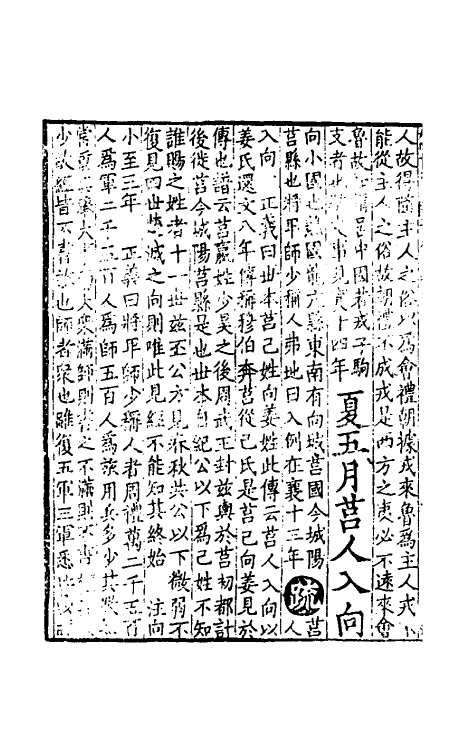 人故得隨主人之俗以爲會禮朝據戎來魯爲主人戎不
能從主人之俗故朝禮不成戎是西方之夷必不遠來會
魯故知謂居中國若戎子駒
支者也駒支事見襄十四年
夏五月莒人入向
向小國也譙國龍亢縣東南有向城莒國今城陽
莒縣也將卑師少稱人弗地曰入例在襄十三年
疏
莒人
入向 正義曰世本莒己姓向姜姓此傳云莒人入向以
姜氏還文八年傳稱穆伯奔莒從己氏是莒己向姜見於
傳也譜云莒嬴姓少昊之後周武王封兹輿於莒初都計
後徙莒今城陽莒縣是也世本自紀公以下爲己姓不知
誰賜之姓者十一世兹丕公方見春秋共公以下微弱不
復見四世楚滅之向則唯此見經不能知其終始 注向
小至三年 正義曰將卑師少稱人者周禮萬二千五百
人爲軍二千五百人爲師五百人爲旅用兵多少其數無
常而大率大夫將大衆滿師則書之不滿則不書
少故經皆不書故也師者衆也雖復五軍三軍悉